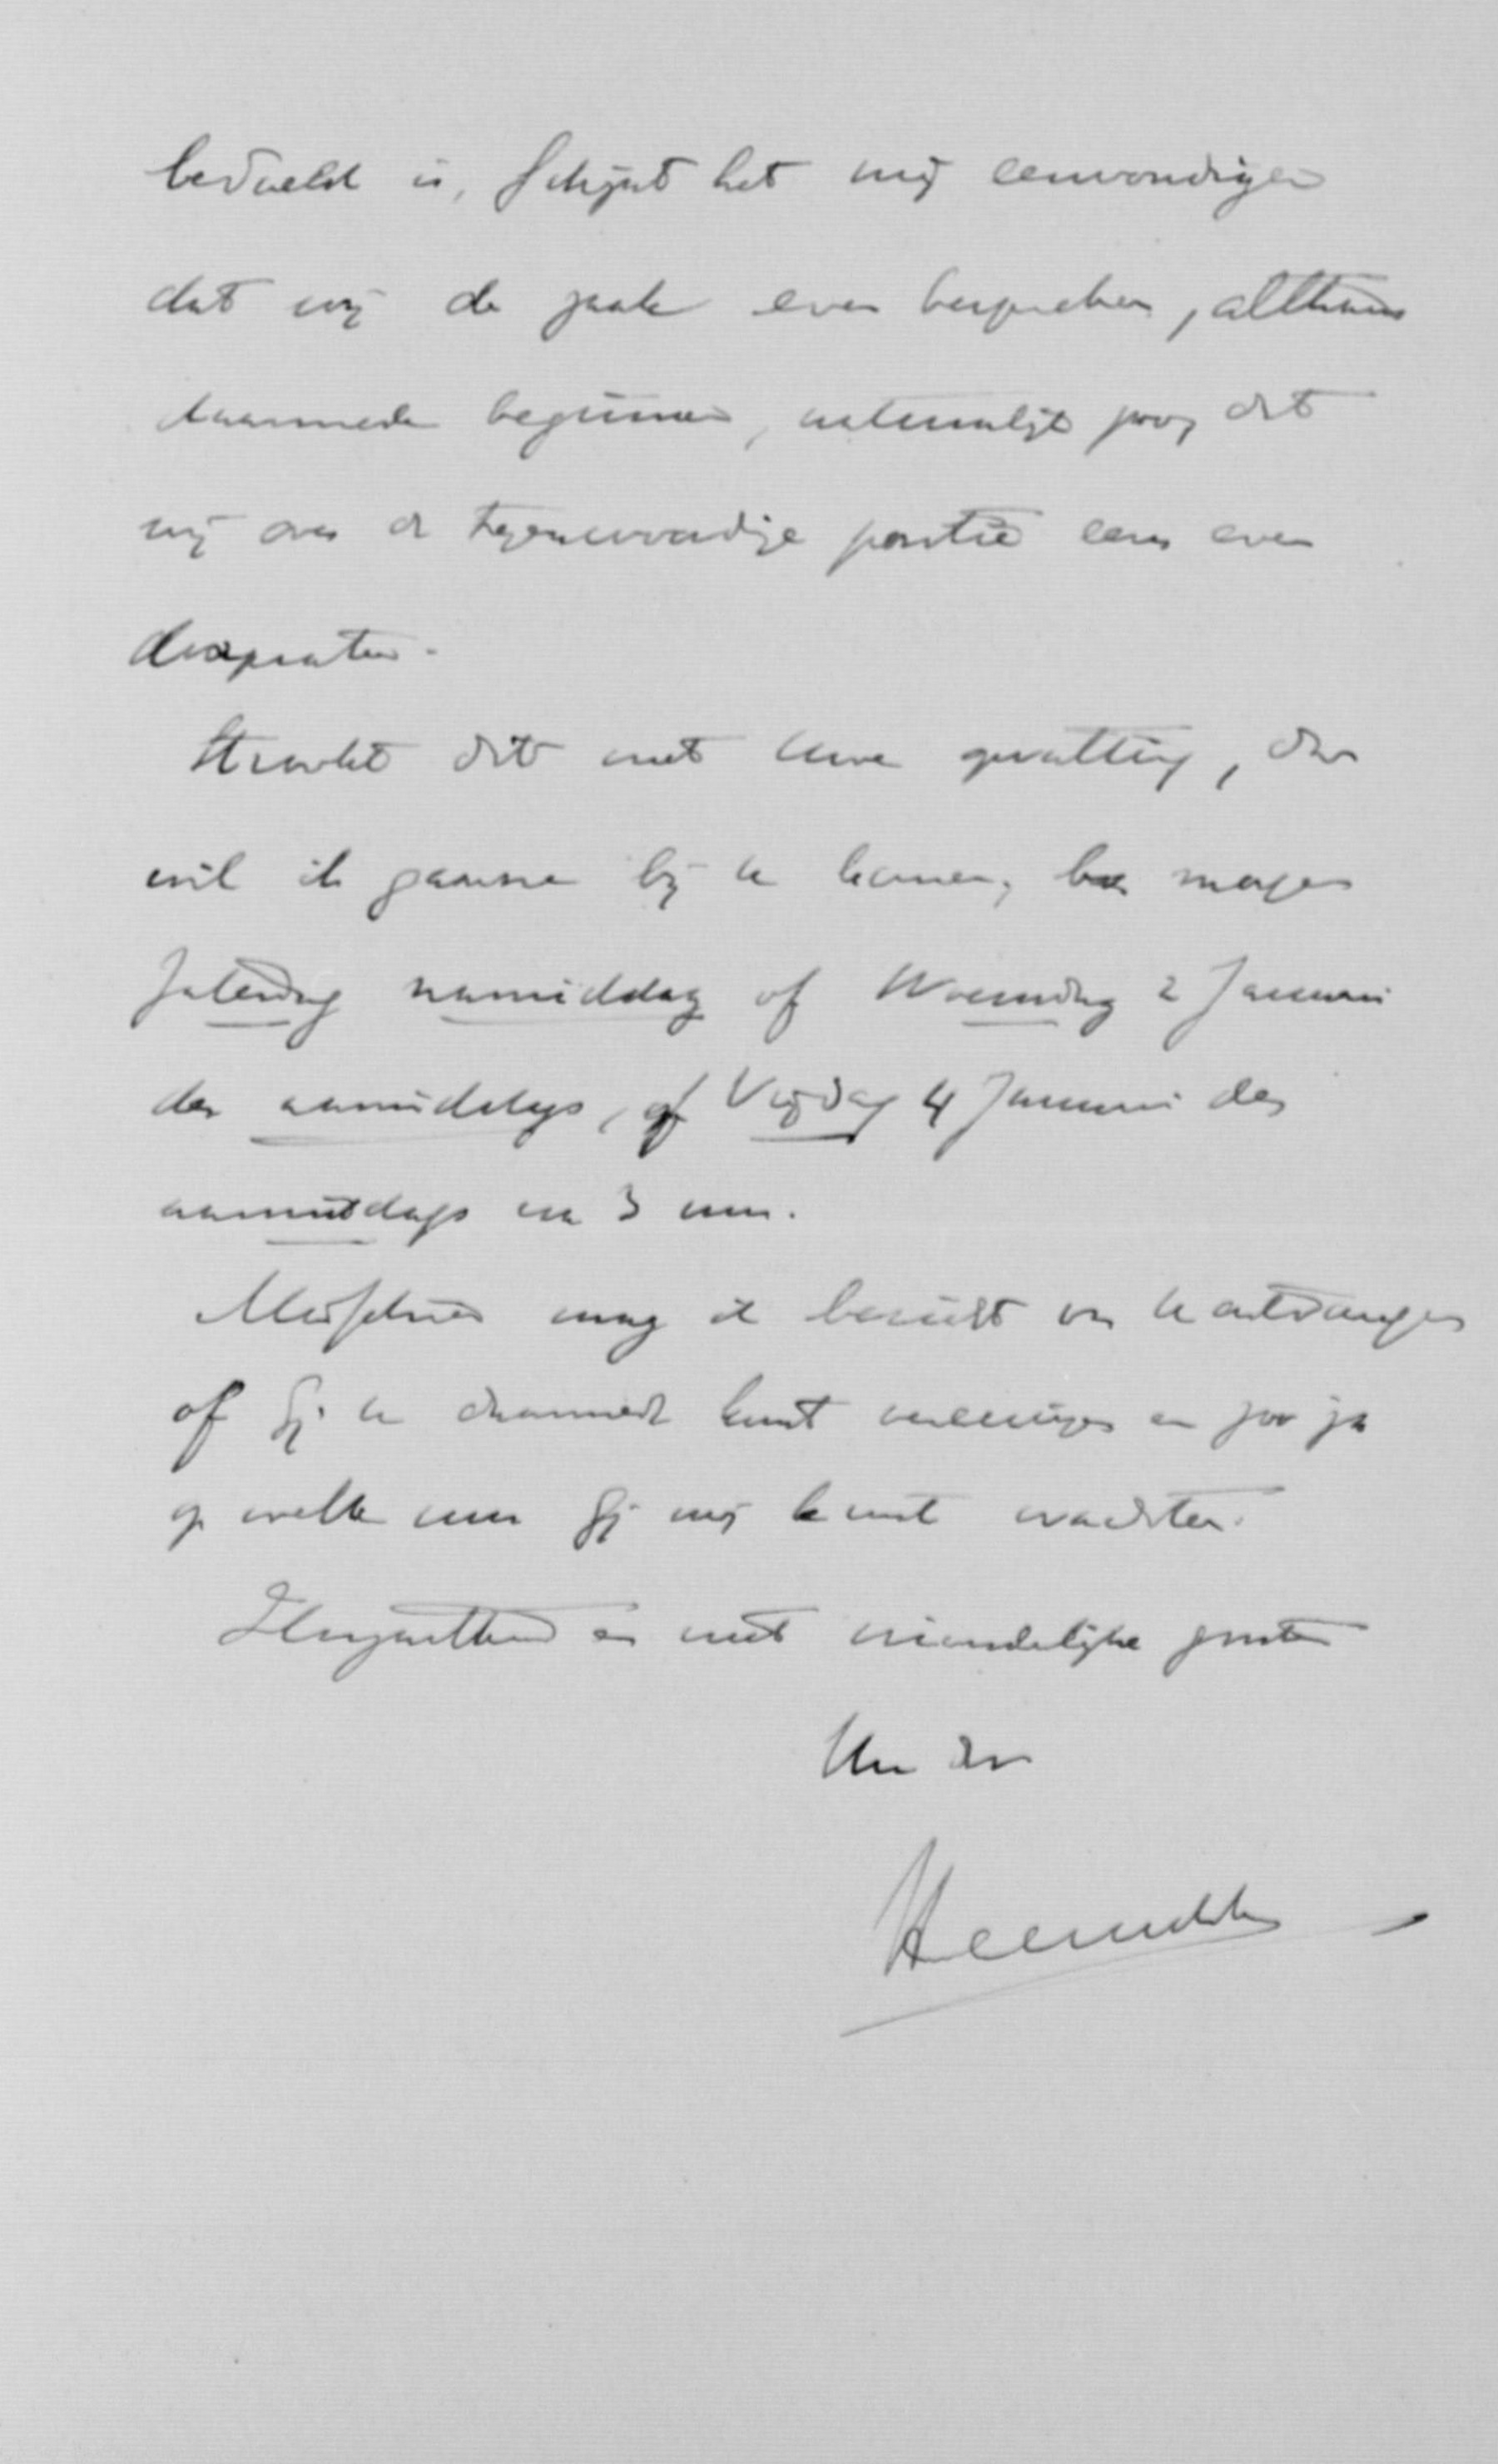 bedoeld is, schijnt het mij eenvoudiger
dat wij de zaak even bespreken, althans
daarmede beginnen, natuurlijk zoo, dat
wij over de tegenwoordige positie eens even
doorpraten.
Strookt dit met Uwe opvatting, dan
wil ik gaarne bij U komen, morgen
Zaterdag namiddag of Woensdag 2 Januari
des namiddags, of Vrijdag 4 Januari des
namiddags na 3 uur.
Misschien mag ik bericht van U ontvangen
of gij U daarmede kunt vereenigen en zoo ja
op welk uur gij mij kunt wachten.
Hoogachtend en met vriendelijke groeten
Uw dr
Heemskerk